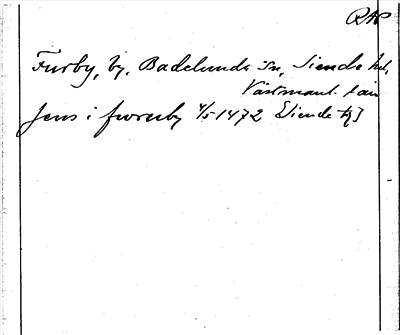 RAP
Furby, by, Badelunda sn, Siende hd,
Västmanl. län
Jens i fwrerby 4/5 1472 Siende tg 3